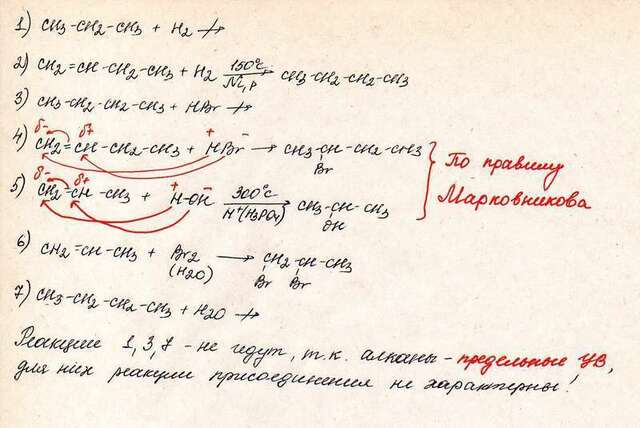 1) CH3-CH2-CH3 + H2 ↛
2) CH2=CH-CH2-CH3 + H2 150°C Ni, p → CH3-CH2-CH2-CH3
3) CH3-CH2-CH2-CH3 + HBr ↛
δ- δ+ + -
4) CH2=CH-CH2-CH3 + HBr → CH3-CH-CH2-CH3
Br
δ- δ+ + -
5) CH2=CH-CH3 + H-OH 300°C H+(H3PO4) → CH3-CH-CH3
OH
По правилу
Марковникова
6) CH2=CH-CH3 + Br2 → CH2-CH-CH3
(H2O) Br Br
7) CH3-CH2-CH2-CH3 + H2O ↛
Реакции 1,3,7 - не идут, т.к. алканы - предельные УВ,
для них реакции присоединения не характерны!